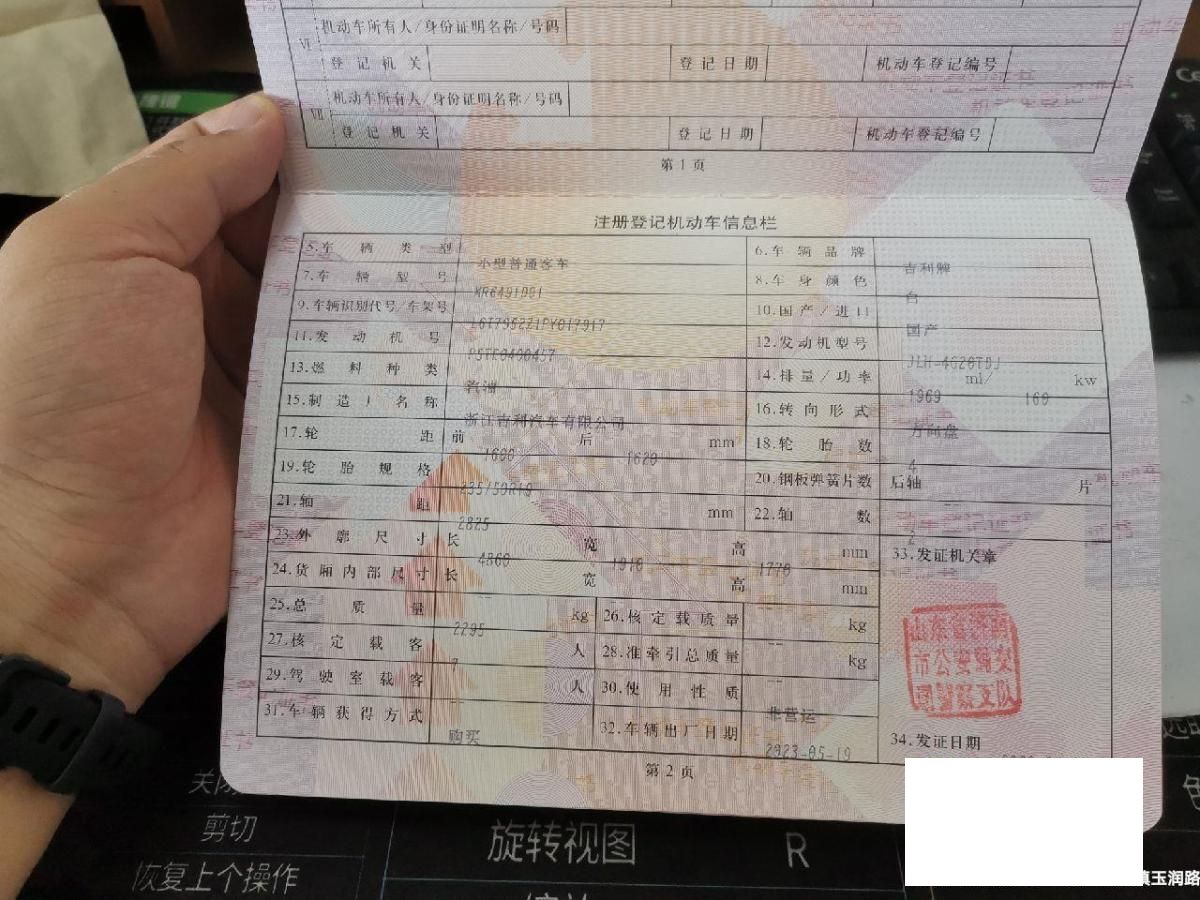 机动车所有人/身份证明名称/号码
VI
登记机关 登记日期 机动车登记编号
机动车所有人/身份证明名称/号码
VII
登记机关 登记日期 机动车登记编号
第1页
注册登记机动车信息栏
5.车辆类型 小型普通客车 6.车辆品牌 吉利牌
7.车辆型号 8.车身颜色 白
9.车辆识别代号/车架号 10.国产/进口 国产
11.发动机号 12.发动机型号 JLH-4G20TDJ
13.燃料种类 汽油 14.排量/功率 1969 ml/ 160 kw
15.制造厂名称 浙江吉利汽车有限公司 16.转向形式 方向盘
17.轮距 前 1600 后 1620 mm 18.轮胎数 4
19.轮胎规格 235/50R19 20.钢板弹簧片数 后轴 片
21.轴距 2825 mm 22.轴数 2
23.外廓尺寸 长 4860 宽 1910 高 1770 mm 33.发证机关章
24.货厢内部尺寸 长 宽 高 mm
25.总质量 2295 kg 26.核定载质量 -- kg
27.核定载客 7 人 28.准牵引总质量 -- kg
29.驾驶室载客 -- 人 30.使用性质 非营运
31.车辆获得方式 购买 32.车辆出厂日期 2023-05-19 34.发证日期
山东省济南
市公安局交
通警察支队
第2页
关闭
剪切
旋转视图 R
恢复上个操作
镇玉润路